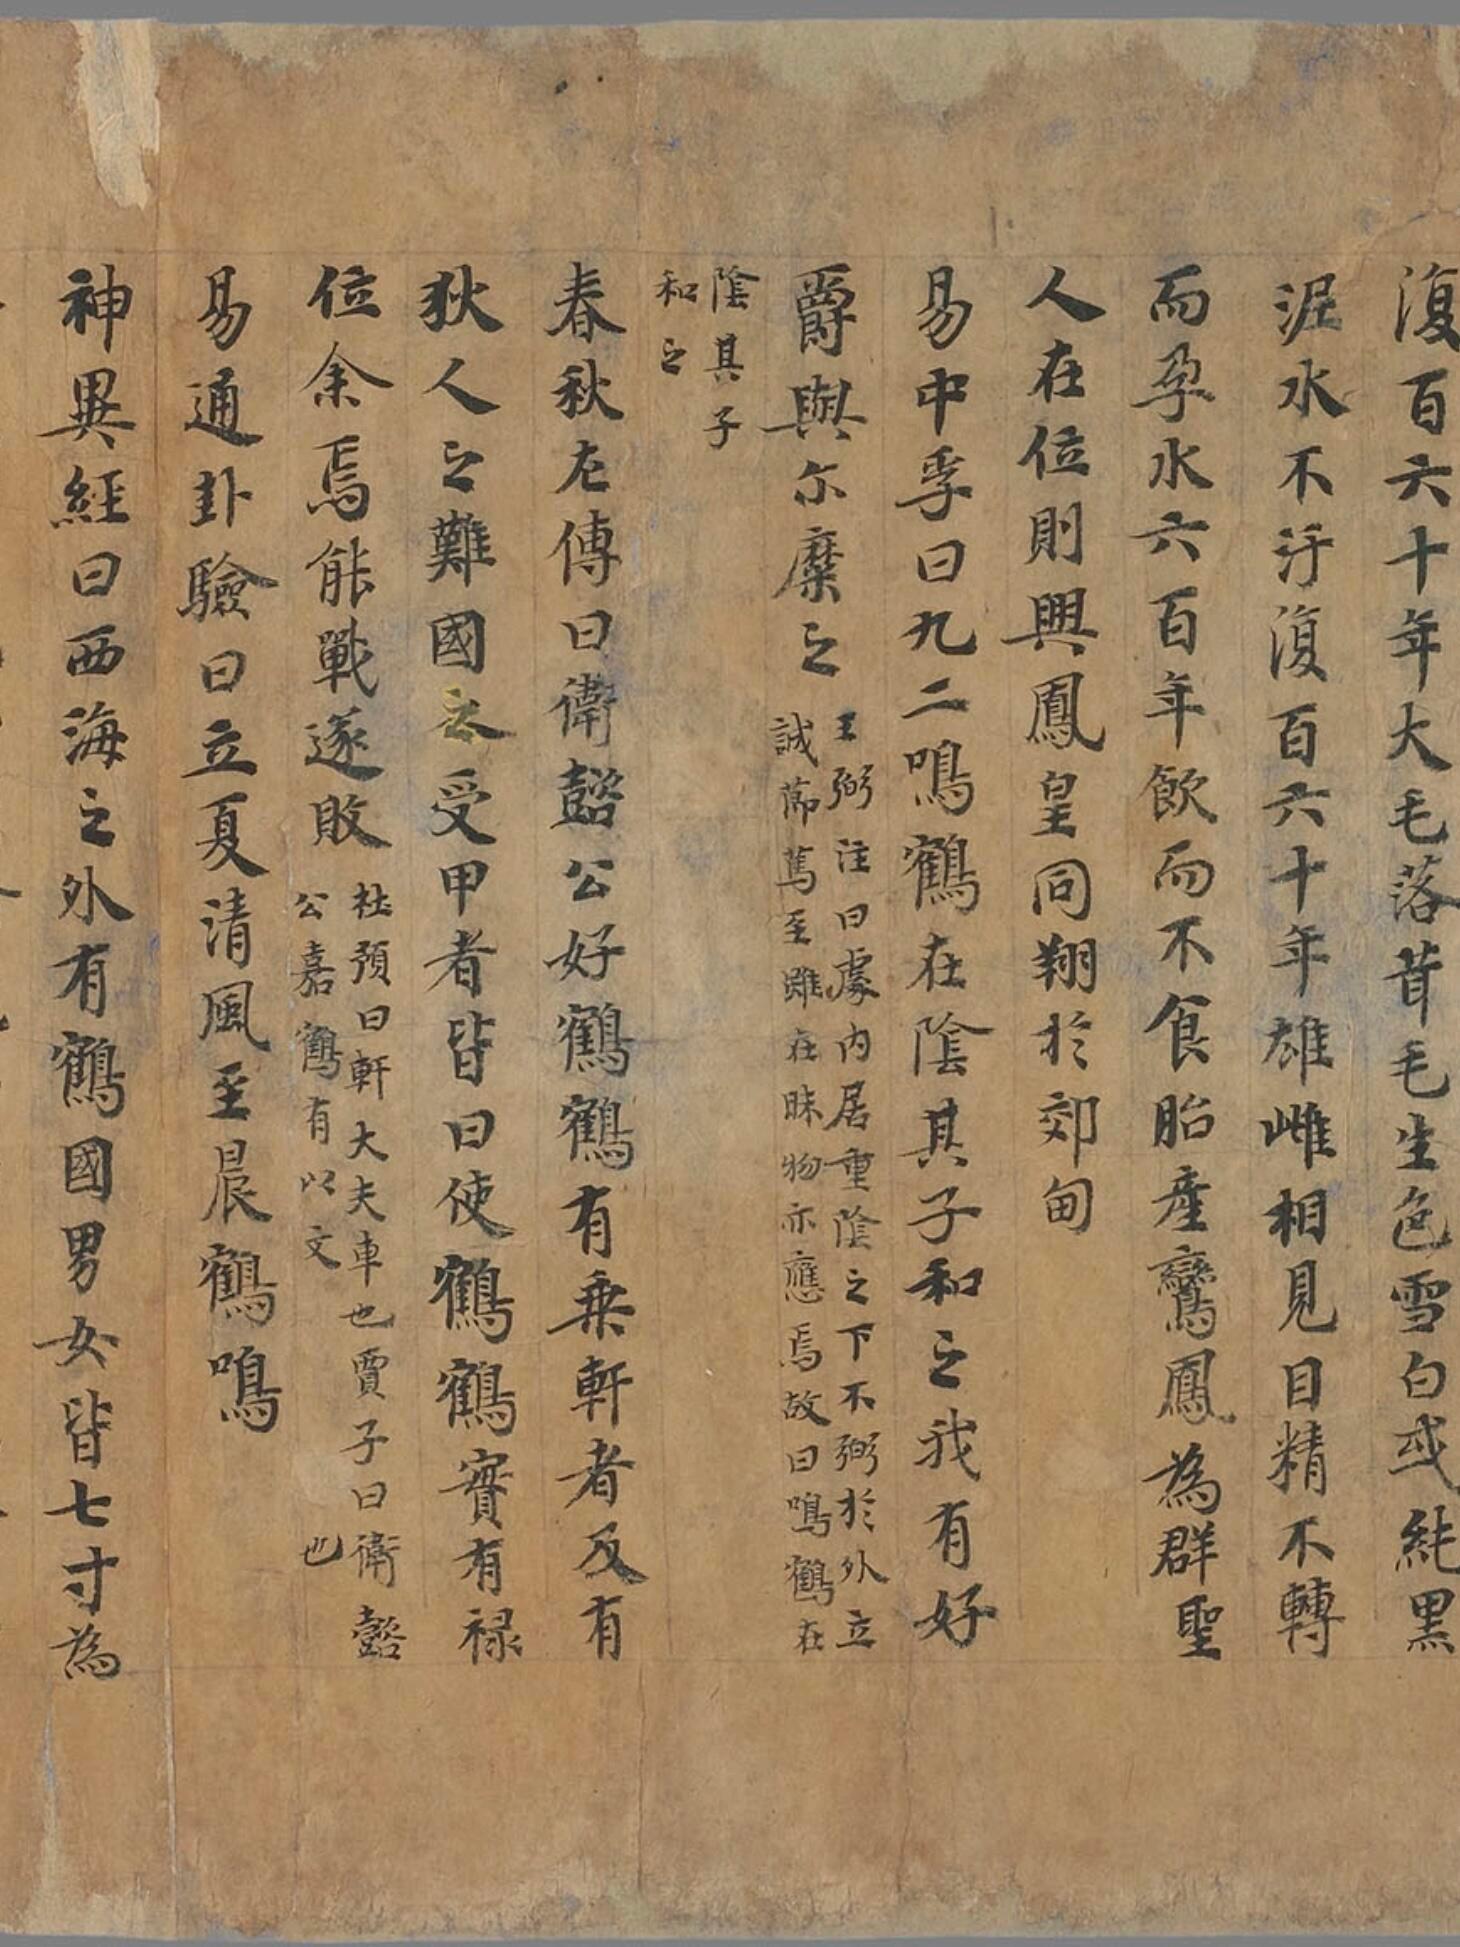 復百六十年大毛落茸毛生色雪白或純黑
泥水不汙復百六十年雄雌相見目精不轉
而孕水六百年飲而不食胎產鸞鳳為群聖
人在位則興鳳皇同翔於郊甸
易中孚曰九二鳴鶴在陰其子和之我有好
爵與尔糜之
王弼注曰處內居重陰之下不弼於外立
誠萹篤至雖在昧物亦應焉故曰鳴鶴在
陰其子
和之
春秋左傳曰衛懿公好鶴鶴有乘軒者及有
狄人之難國人受甲者皆曰使鶴鶴實有祿
位余焉能戰遂敗
杜預曰軒大夫車也賈子曰衛懿
公嘉鶴有以文也
易通卦驗曰立夏清風至晨鶴鳴
神異經曰西海之外有鶴國男女皆七寸為